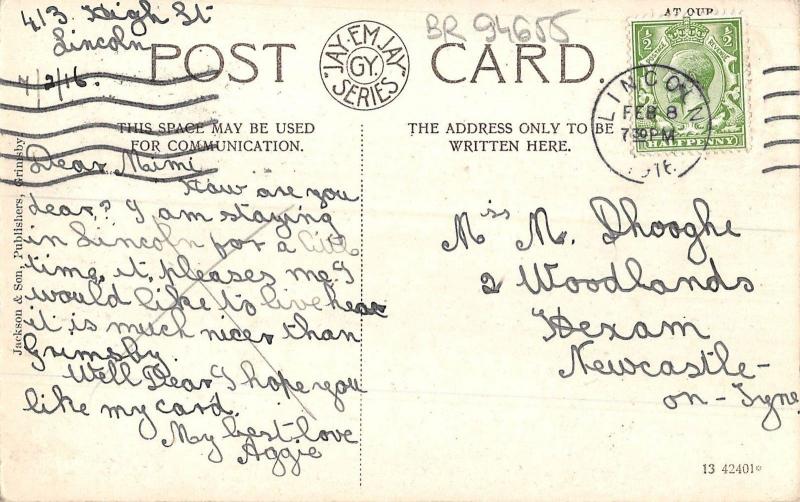 413 High St
Lincoln
7/2/16.
BR 94655
AT OUR
POST CARD.
JAY-EM-JAY
GY.
SERIES
THIS SPACE MAY BE USED
FOR COMMUNICATION.
THE ADDRESS ONLY TO BE
WRITTEN HERE.
½ POSTAGE REVENUE ½
HALFPENNY
LINCOLN
FEB 8
7 30 PM
1916
Jackson & Son, Publishers, Grimsby.
Dear Mimi
How are you
dear? I am staying
in Lincoln for a little
time, it pleases me. I
would like to live hear
it is much nicer than
Grimsby.
Well Dear I hope you
like my card.
My best love
Aggie
Miss M. Dhooghe
2 Woodlands
Hexam
Newcastle-
on-Tyne
13 42401*